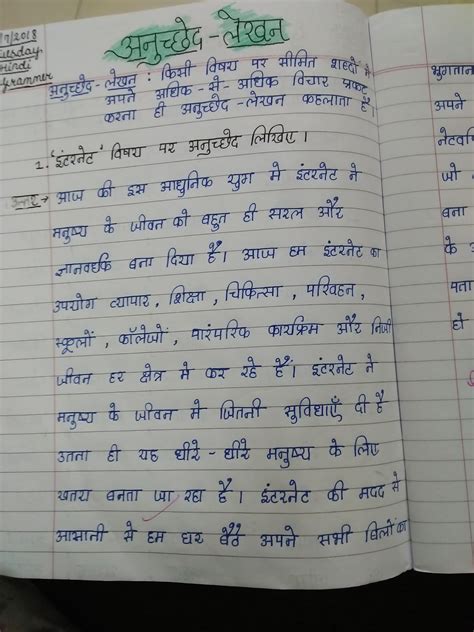 /7/2018
Tuesday
Hindi
Grammer
अनुच्छेद - लेखन
अनुच्छेद - लेखन : किसी विषय पर सीमित शब्दों में
अपने अधिक - से - अधिक विचार प्रकट
करना ही अनुच्छेद - लेखन कहलाता है।
1. 'इंटरनेट' विषय पर अनुच्छेद लिखिए।
उत्तर → आज की इस आधुनिक युग मे इंटरनेट ने
मनुष्य के जीवन को बहुत ही सरल और
ज्ञानवर्धक बना दिया है। आज हम इंटरनेट का
उपयोग व्यापार, शिक्षा, चिकित्सा, परिवहन,
स्कूलों, कॉलेजों, पारंपरिक कार्यक्रम और निजी
जीवन हर क्षेत्र मे कर रहे हैं। इंटरनेट ने
मनुष्य के जीवन मे जितनी सुविधाएँ दी है
उतना ही यह धीरे - धीरे मनुष्य के लिए
खतरा बनता जा रहा है। इंटरनेट की मदद से
आसानी से हम घर बैठे अपने सभी बिलों का
भुगतान
अपने
जो
बना
के
पता
हो